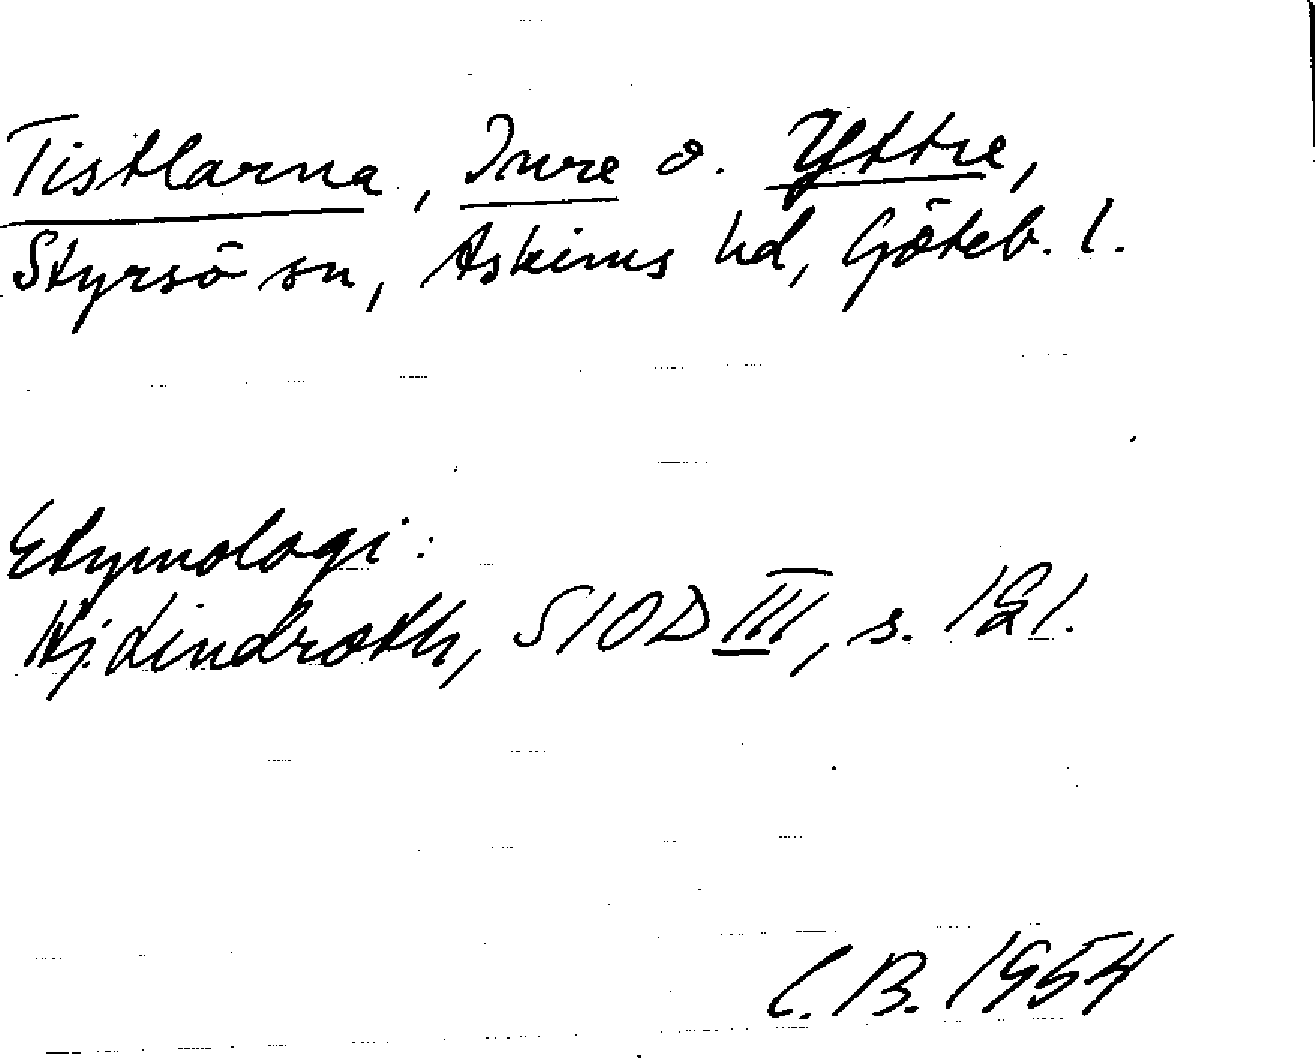 Tistlarna, Inre o. Yttre,
Styrsö sn, Askims hd, Göteb. l.
Etymologi:
Hj. Lindroth, SIOD III, s. 121.
C.B. 1954